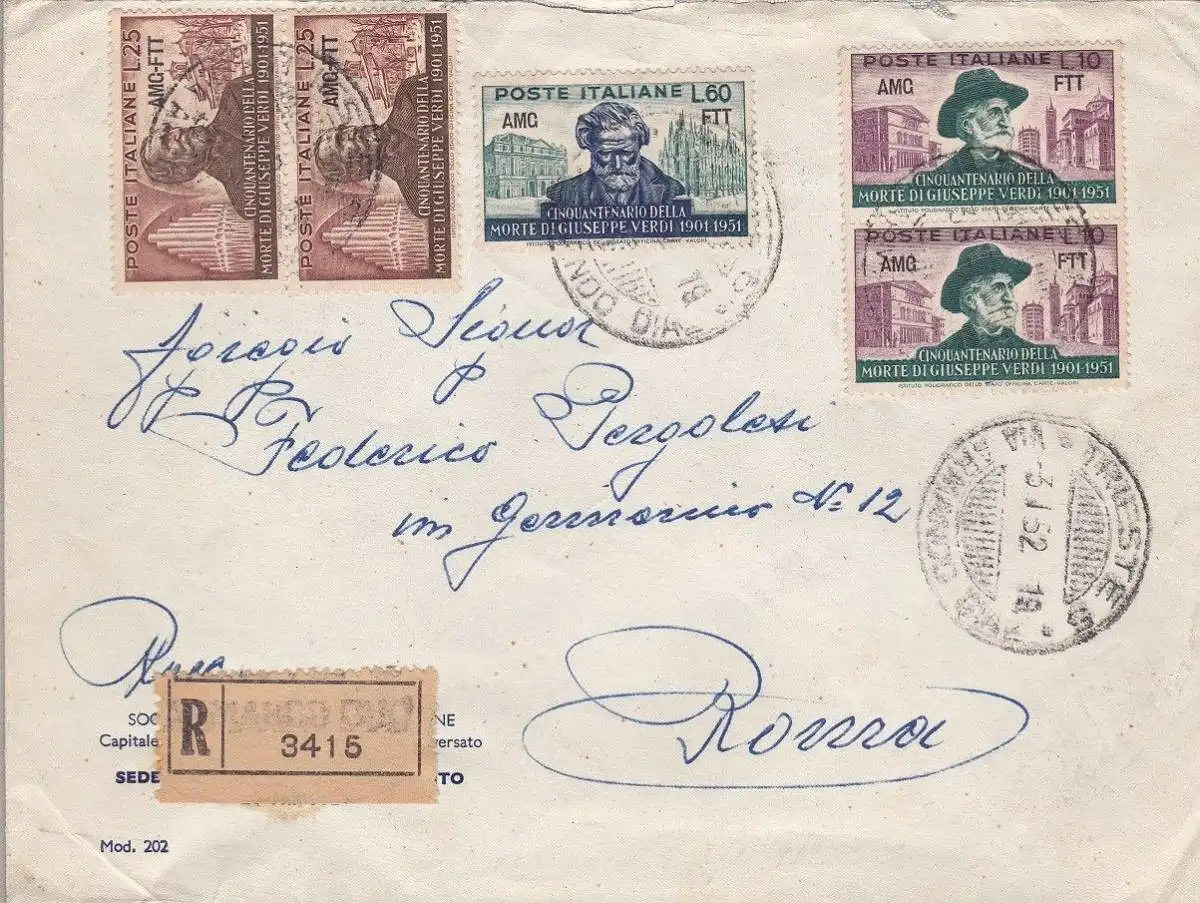 POSTE ITALIANE L.25
AMG-FTT
CINQUANTENARIO DELLA
MORTE DI GIUSEPPE VERDI 1901-1951
POSTE ITALIANE L.25
AMG-FTT
CINQUANTENARIO DELLA
MORTE DI GIUSEPPE VERDI 1901-1951
POSTE ITALIANE L.60
AMG FTT
CINQUANTENARIO DELLA
MORTE DI GIUSEPPE VERDI 1901-1951
POSTE ITALIANE L.10
AMG FTT
CINQUANTENARIO DELLA
MORTE DI GIUSEPPE VERDI 1901-1951
POSTE ITALIANE L.10
AMG FTT
CINQUANTENARIO DELLA
MORTE DI GIUSEPPE VERDI 1901-1951
ISTITUTO POLIGRAFICO DELLO STATO OFFICINA CARTE-VALORI
Federico Pergolesi
N. 12
TRIESTE 5
-3 1 52 19
Roma
R
3415
SOC NE
Capitale versato
SEDE TO
Mod. 202